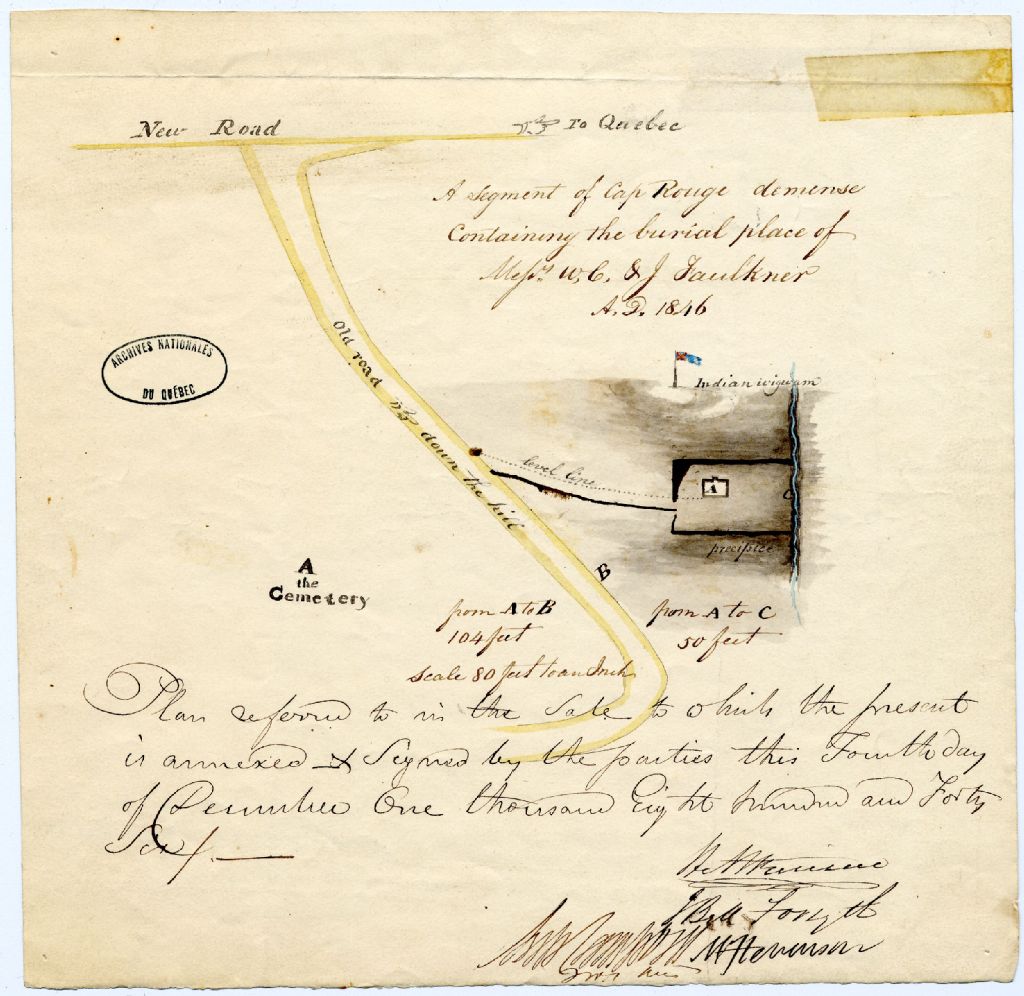 New Road
To Quebec
A segment of Cap Rouge demense
Containing the burial place of
Messrs W. C. & J Faulkner
A. D. 1846
ARCHIVES NATIONALES
DU QUÉBEC
Old road down the hill
Indian wigwam
level line
A
C
precipice
B
A
the
Cemetery
from A to B
104 feet
scale 80 feet to an Inch
from A to C
50 feet
Plan referred to in the Sale to which the present
is annexed & Signed by the parties this Fourth day
of December One thousand Eight hundred and Forty
Six /. —
J Bell Forsyth
McStevenson